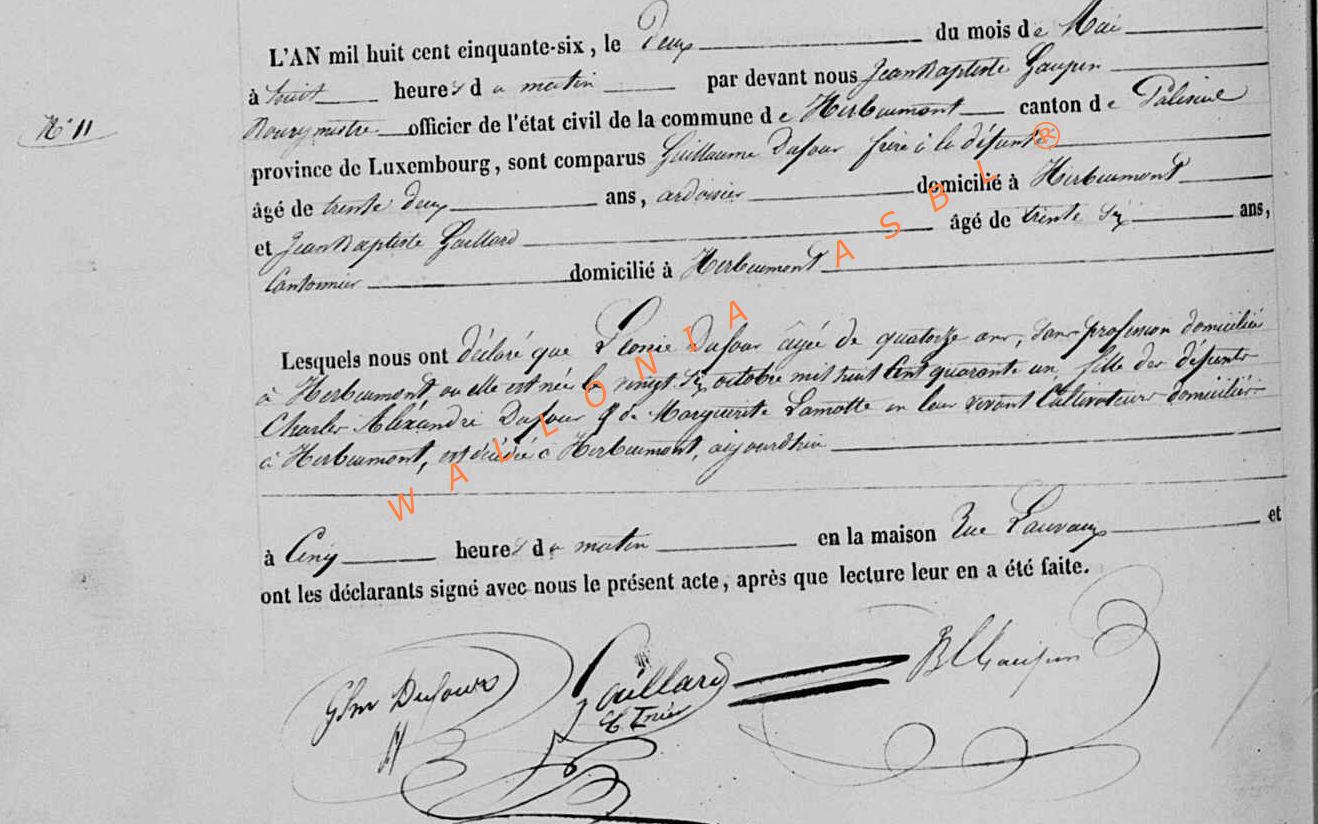 L'AN mil huit cent cinquante-six, le Deux du mois de Mai
à huit heures du matin par devant nous Jean Baptiste Gaupin
N° 11
Bourgmestre officier de l'état civil de la commune de Herbeumont canton de Paliseul
province de Luxembourg, sont comparus Guillaume Dufour frère à la défunte
âgé de trente deux ans, ardoisier domicilié à Herbeumont
et Jean Baptiste Gaillard âgé de trente six ans,
Cantonnier domicilié à Herbeumont
Lesquels nous ont déclaré que Léonie Dufour âgée de quatorze ans, sans profession domiciliée
à Herbeumont, ou elle est née le vingt six octobre mil huit cent quarante un, fille des défunts
Charles Aléxandre Dufour & de Marguerite Lamotte en leur vivant Cultivateurs domiciliés
à Herbeumont, est décédée à Herbeumont, aujourdhui
à Cinq heures du matin en la maison Rue Lauvaux et
ont les déclarants signé avec nous le présent acte, après que lecture leur en a été faite.
Glm Dufour Gaillard
WALLONIA ASBL ®